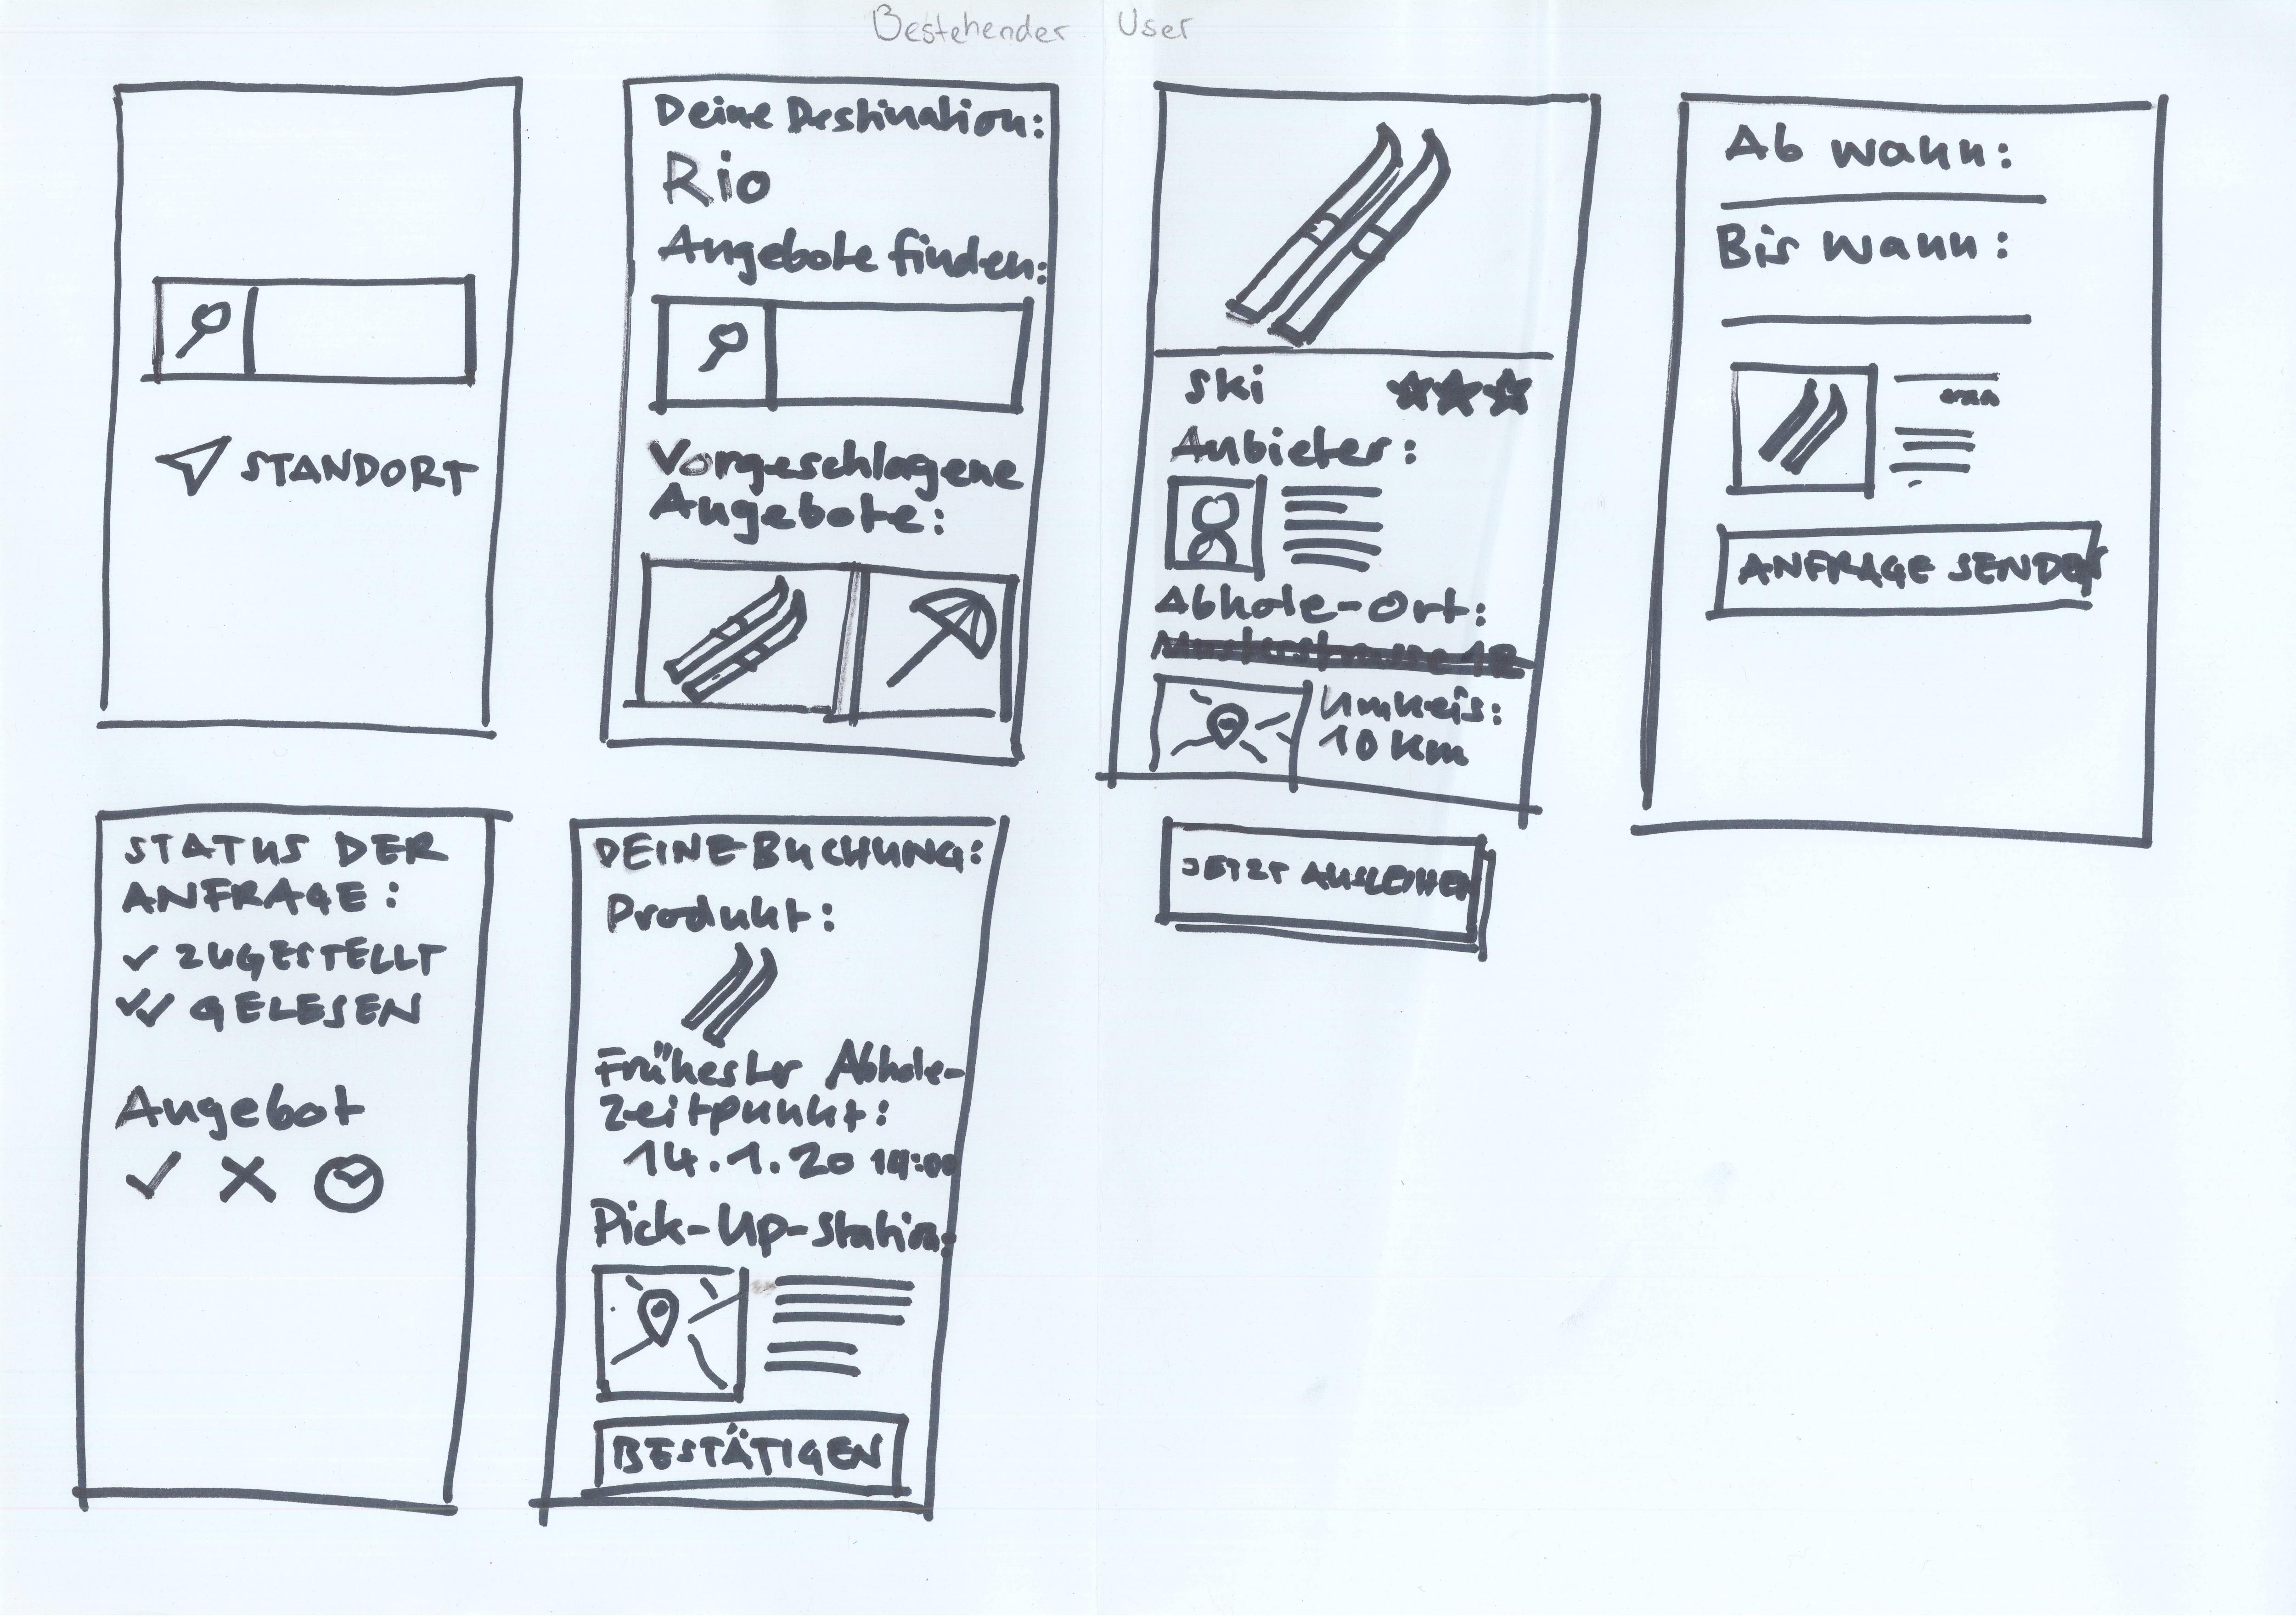 Bestehender User
STANDORT
Deine Destination:
Rio
Angebote finden:
Vorgeschlagene
Angebote:
Ski
Anbieter:
Abhole-Ort:
Musterstrasse 12
Umkeis:
10 km
JETZT AUSLEIHEN
Ab wann:
Bis wann:
ANFRAGE SENDEN
STATUS DER
ANFRAGE:
ZUGESTELLT
GELESEN
Angebot
DEINE BUCHUNG:
Produkt:
Frühester Abhole-
zeitpunkt:
14.1.20 14:00
Pick-Up-Station:
BESTÄTIGEN